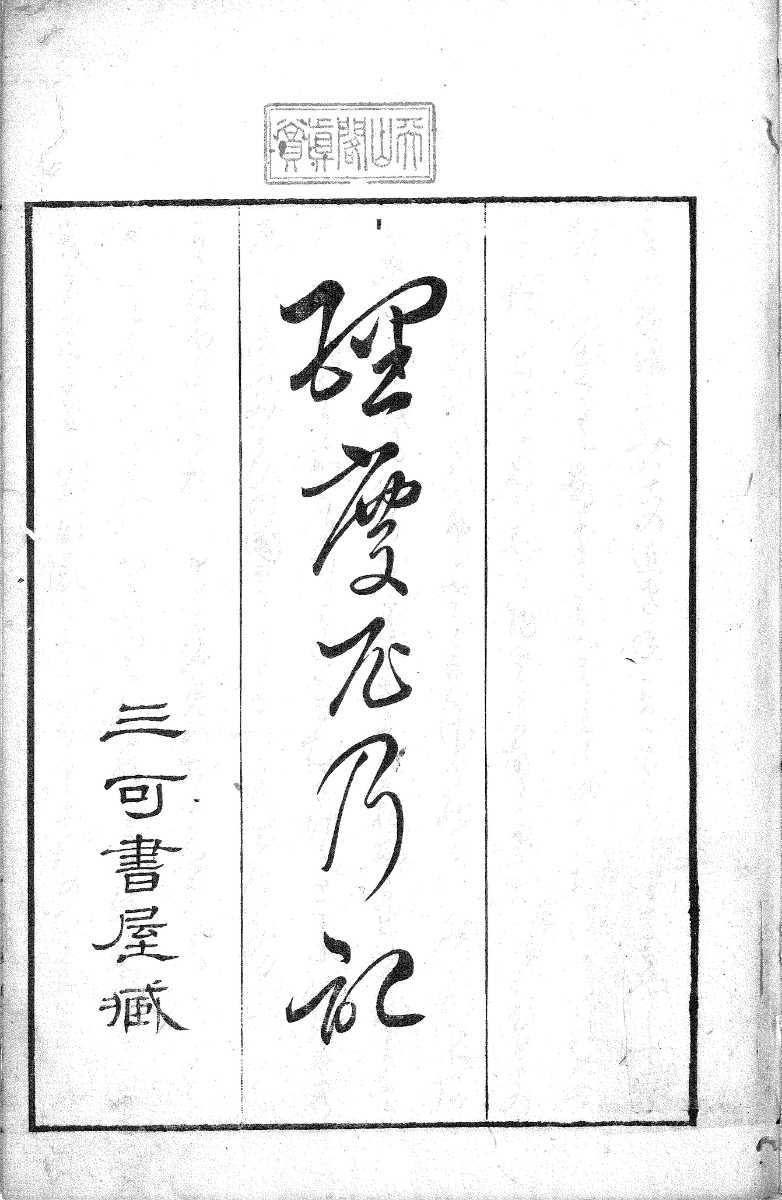 理慶尼乃記
三可書屋藏